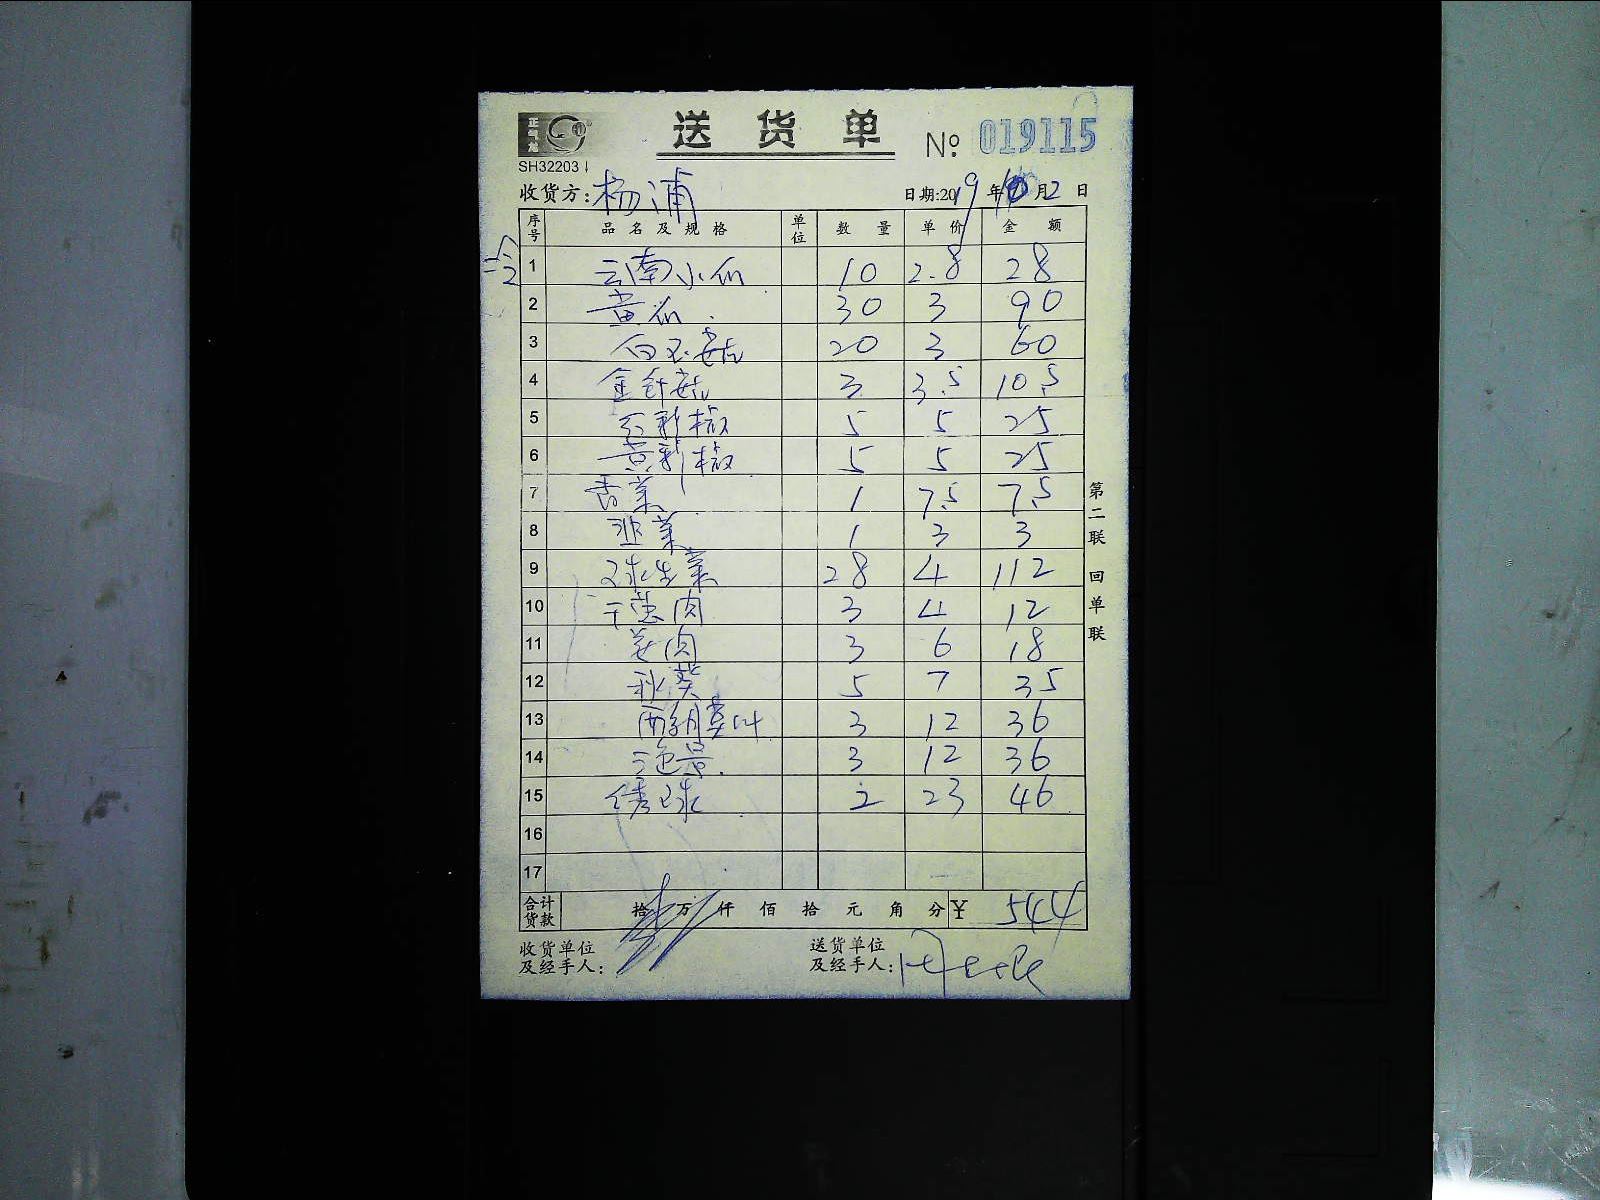 正气龙
送货单 № 019115
SH32203
收货方: 杨浦 日期:2019年10月2日
序号 品名及规格 单位 数量 单价 金额
1 云南小瓜 10 2.8 28
2 黄瓜 30 3 90
3 白玉菇 20 3 60
4 金针菇 3 3.5 10.5
5 红彩椒 5 5 25
6 黄彩椒 5 5 25
7 香菜 1 7.5 7.5
8 韭菜 1 3 3
9 球生菜 28 4 112
10 干葱肉 3 4 12
11 姜肉 3 6 18
12 秋葵 5 7 35
13 3 12 36
14 三色 3 12 36
15 绣球 2 23 46
16
17
合计货款 拾 万 仟 佰 拾 元 角 分 ¥ 544
收货单位及经手人:
送货单位及经手人:
第二联 回单联